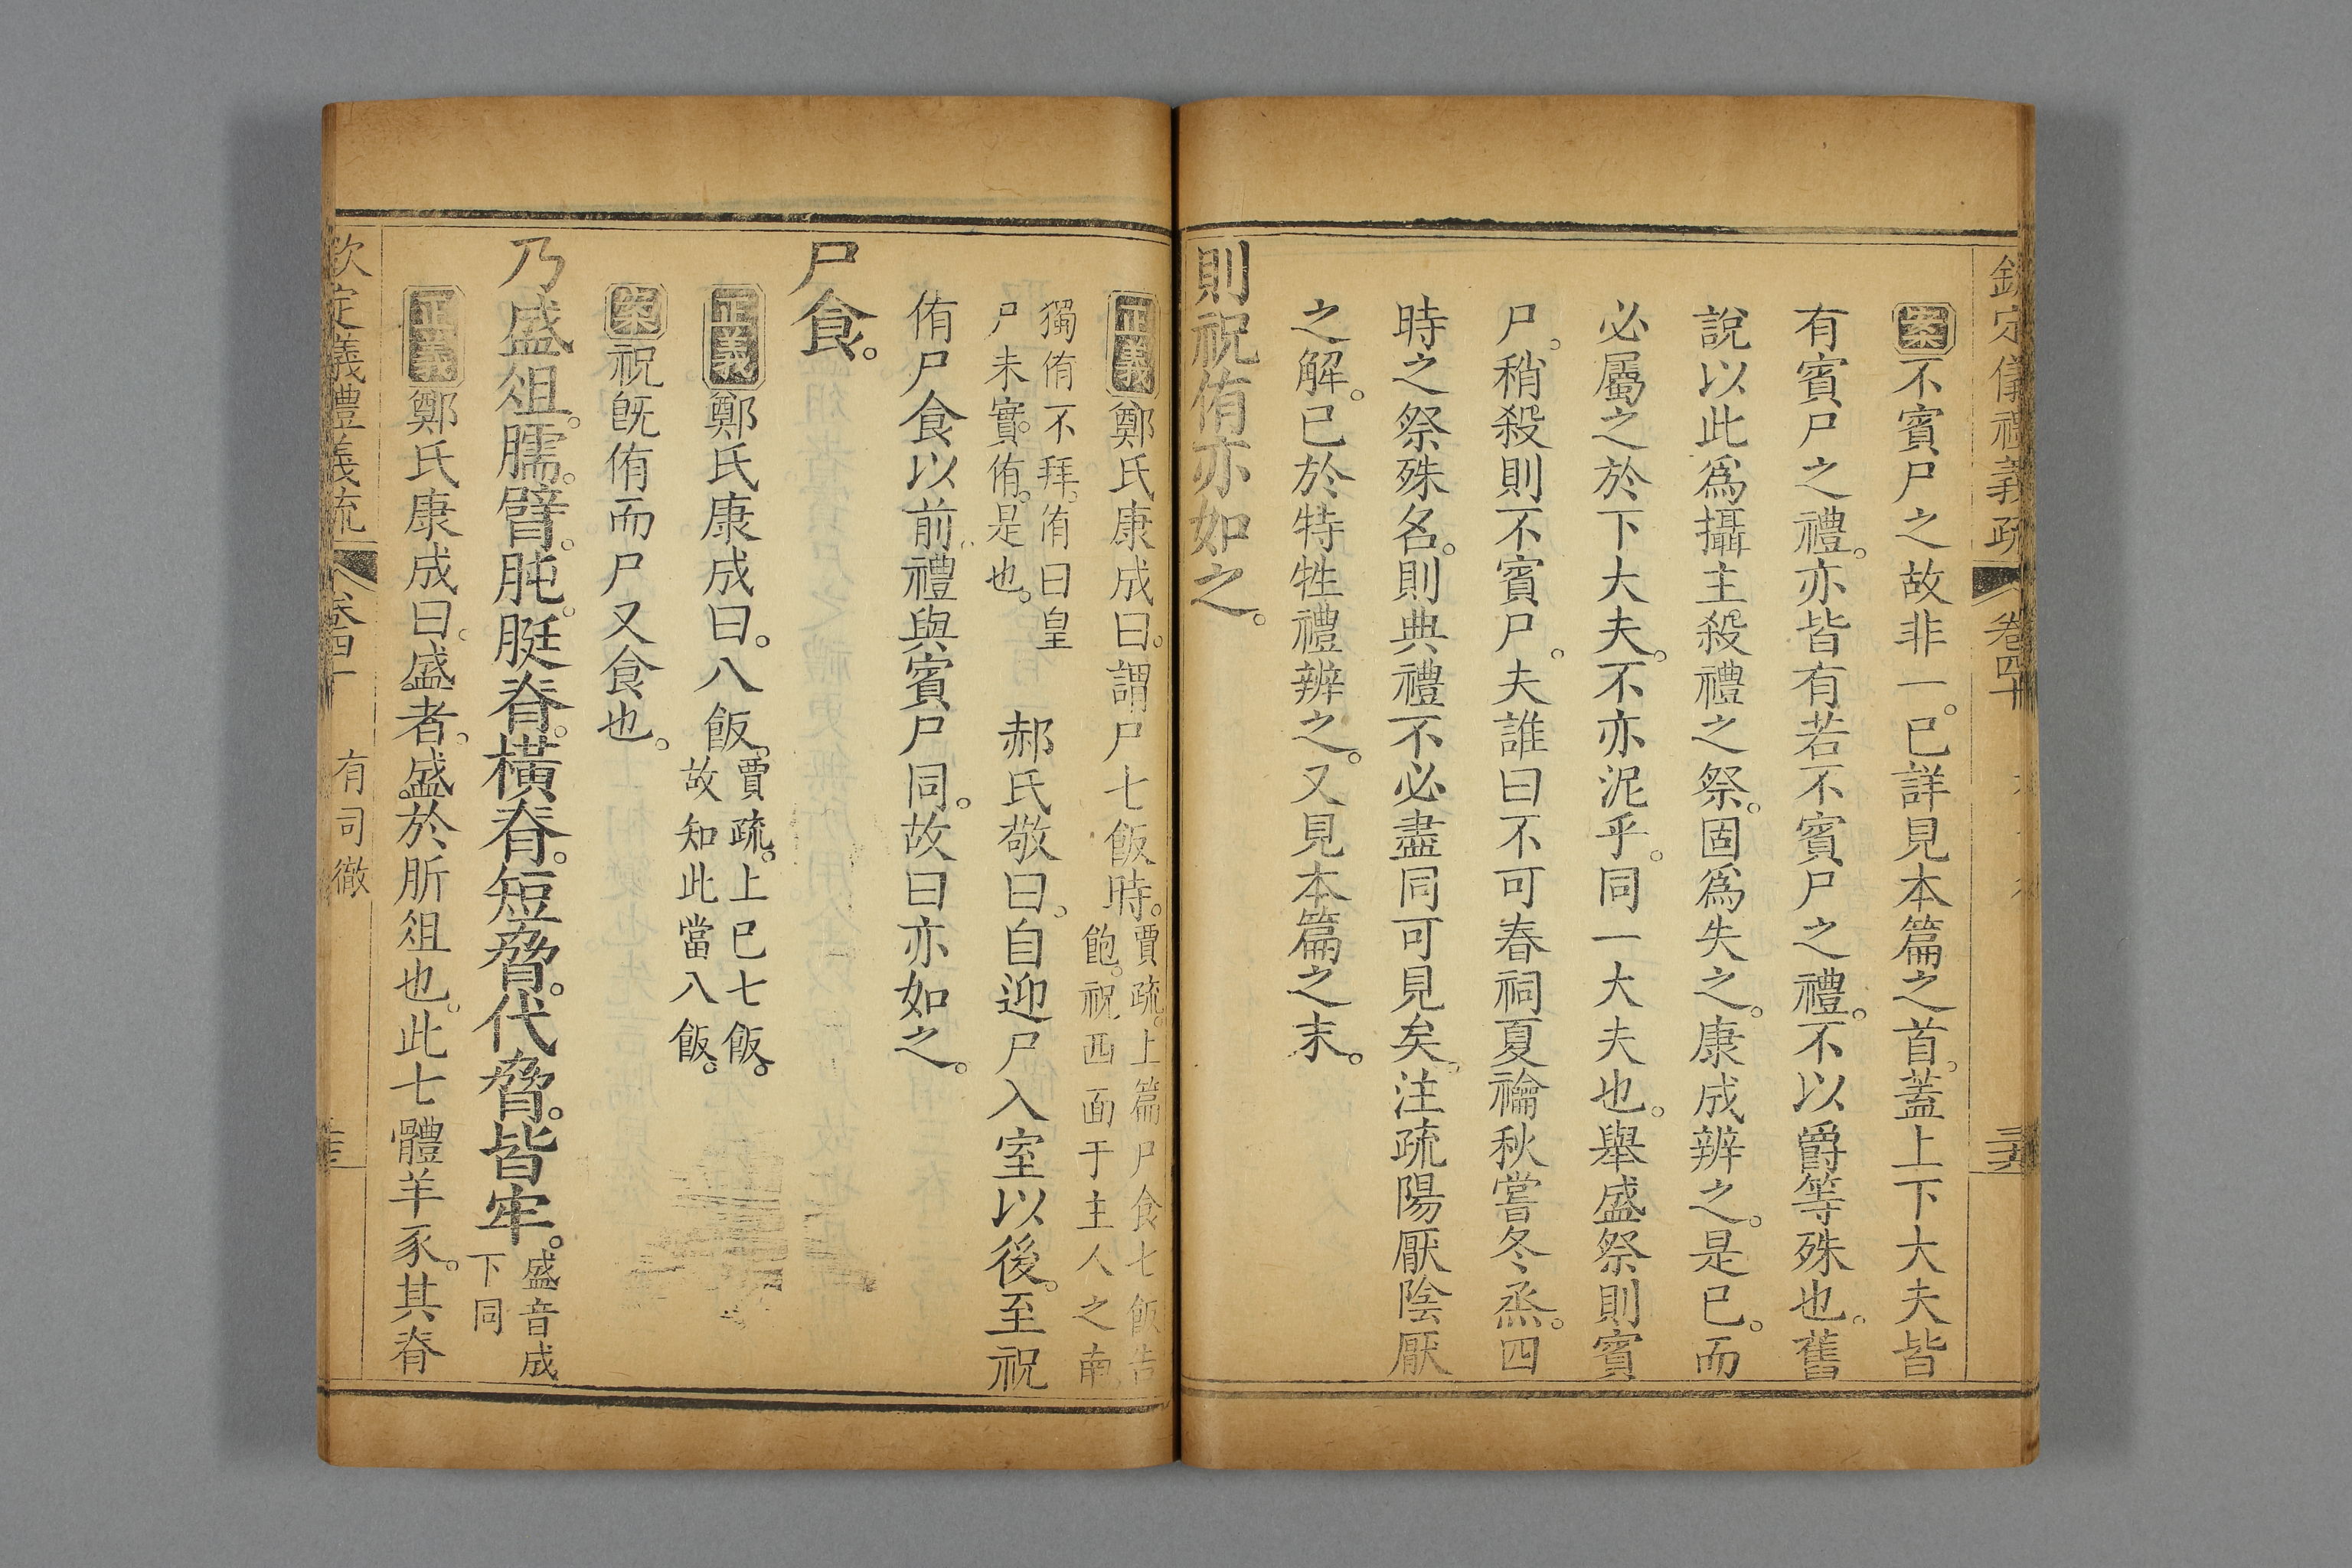 欽定儀禮義疏 卷四十
案不賓尸之故非一。已詳見本篇之首。蓋上下大夫皆
有賓尸之禮。亦皆有若不賓尸之禮。不以爵等殊也。舊
說以此爲攝主殺禮之祭。固爲失之。康成辨之。是已。而
必屬之於下大夫。不亦泥乎。同一大夫也。舉盛祭則賓
尸。稍殺則不賓尸。夫誰曰不可春祠夏禴秋嘗冬烝。四
時之祭殊名。則典禮不必盡同可見矣。注疏陽厭陰厭
之解。已於特牲禮辨之。又見本篇之末。
則祝侑亦如之。
正義鄭氏康成曰。謂尸七飯時。賈疏。上篇尸食七飯告
飽。祝西面于主人之南
獨侑不拜。侑曰皇
尸未實。侑。是也。
郝氏敬曰。自迎尸入室以後。至祝
侑尸食以前禮與賓尸同。故曰亦如之。
尸食。
正義鄭氏康成曰。八飯。賈疏。上已七飯。
故知此當八飯。
案祝既侑而尸又食也。
乃盛俎。臑。臂。肫。脡脊。橫脊。短脅。代脅。皆牢。盛音成
下同
正義鄭氏康成曰。盛者。盛於肵俎也。此七體羊豕。其脊
欽定儀禮義疏 卷四十 有司徹